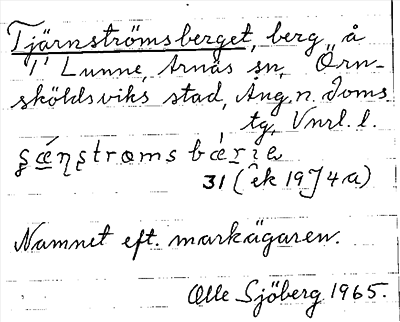 Tjärnströmsberget, berg å
1' Lunne, Arnäs sn, Örn-
sköldsviks stad, Ång. n. doms.
tg, Vnrl. l.
31 (ek 19J4a)
Namnet eft. markägaren.
Olle Sjöberg 1965.